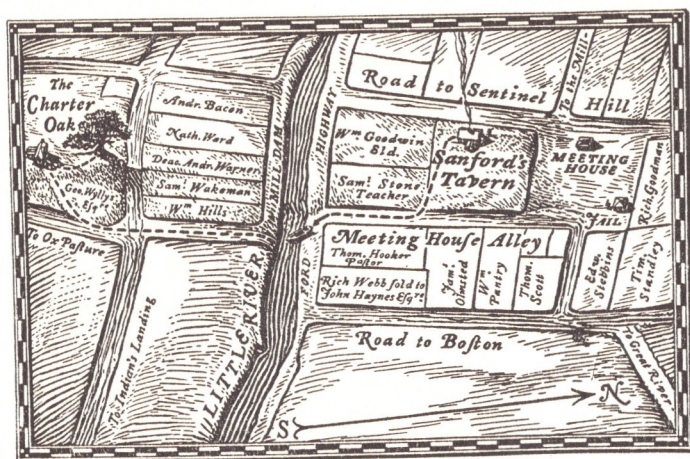 The
Charter
Oak
Geo. Wyllys
Esqr
To Ox Pasture
To Indian's Landing
Andr. Bacon
Nath. Ward
Deac. Andr. Warner
Saml. Wakeman
Wm Hills
MILL DAM
LITTLE RIVER
HIGHWAY
FORD
Road to Sentinel
Hill
To the Mill
Wm Goodwin
Eld.
Saml. Stone
Teacher
Sanford's
Tavern
MEETING
HOUSE
JAIL
Rich. Goodman
Meeting House Alley
Thom. Hooker
Pastor
Rich Webb sold to
John Haynes Esqre
Jaml. Olmsted
Wm
Pantry
Thom.
Scott
Edw.
Stebbins
Tim.
Standley
Road to Boston
To Great River
S
N